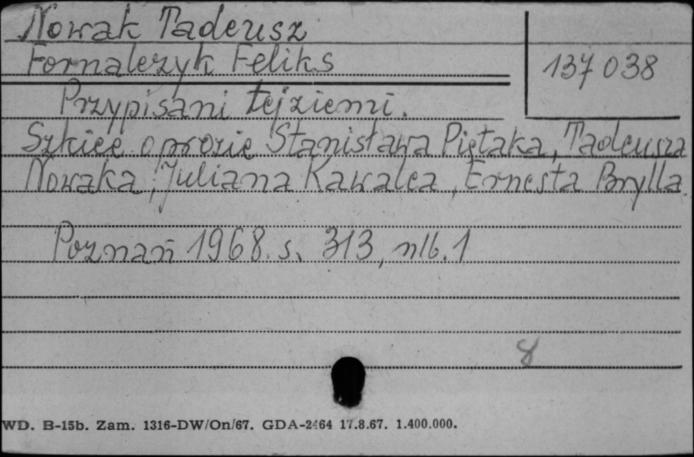 Nowak Tadeusz
Fornalczyk Feliks
137 038
Przypisani tej ziemi.
Szkice o prozie Stanisława Piętaka, Tadeusza
Nowaka, Juliana Kawalca, Ernesta Brylla
Poznań 1968. s. 313, nlb. 1
8
WD. B-15b. Zam. 1316-DW/On/67. GDA-2464 17.8.67. 1.400.000.